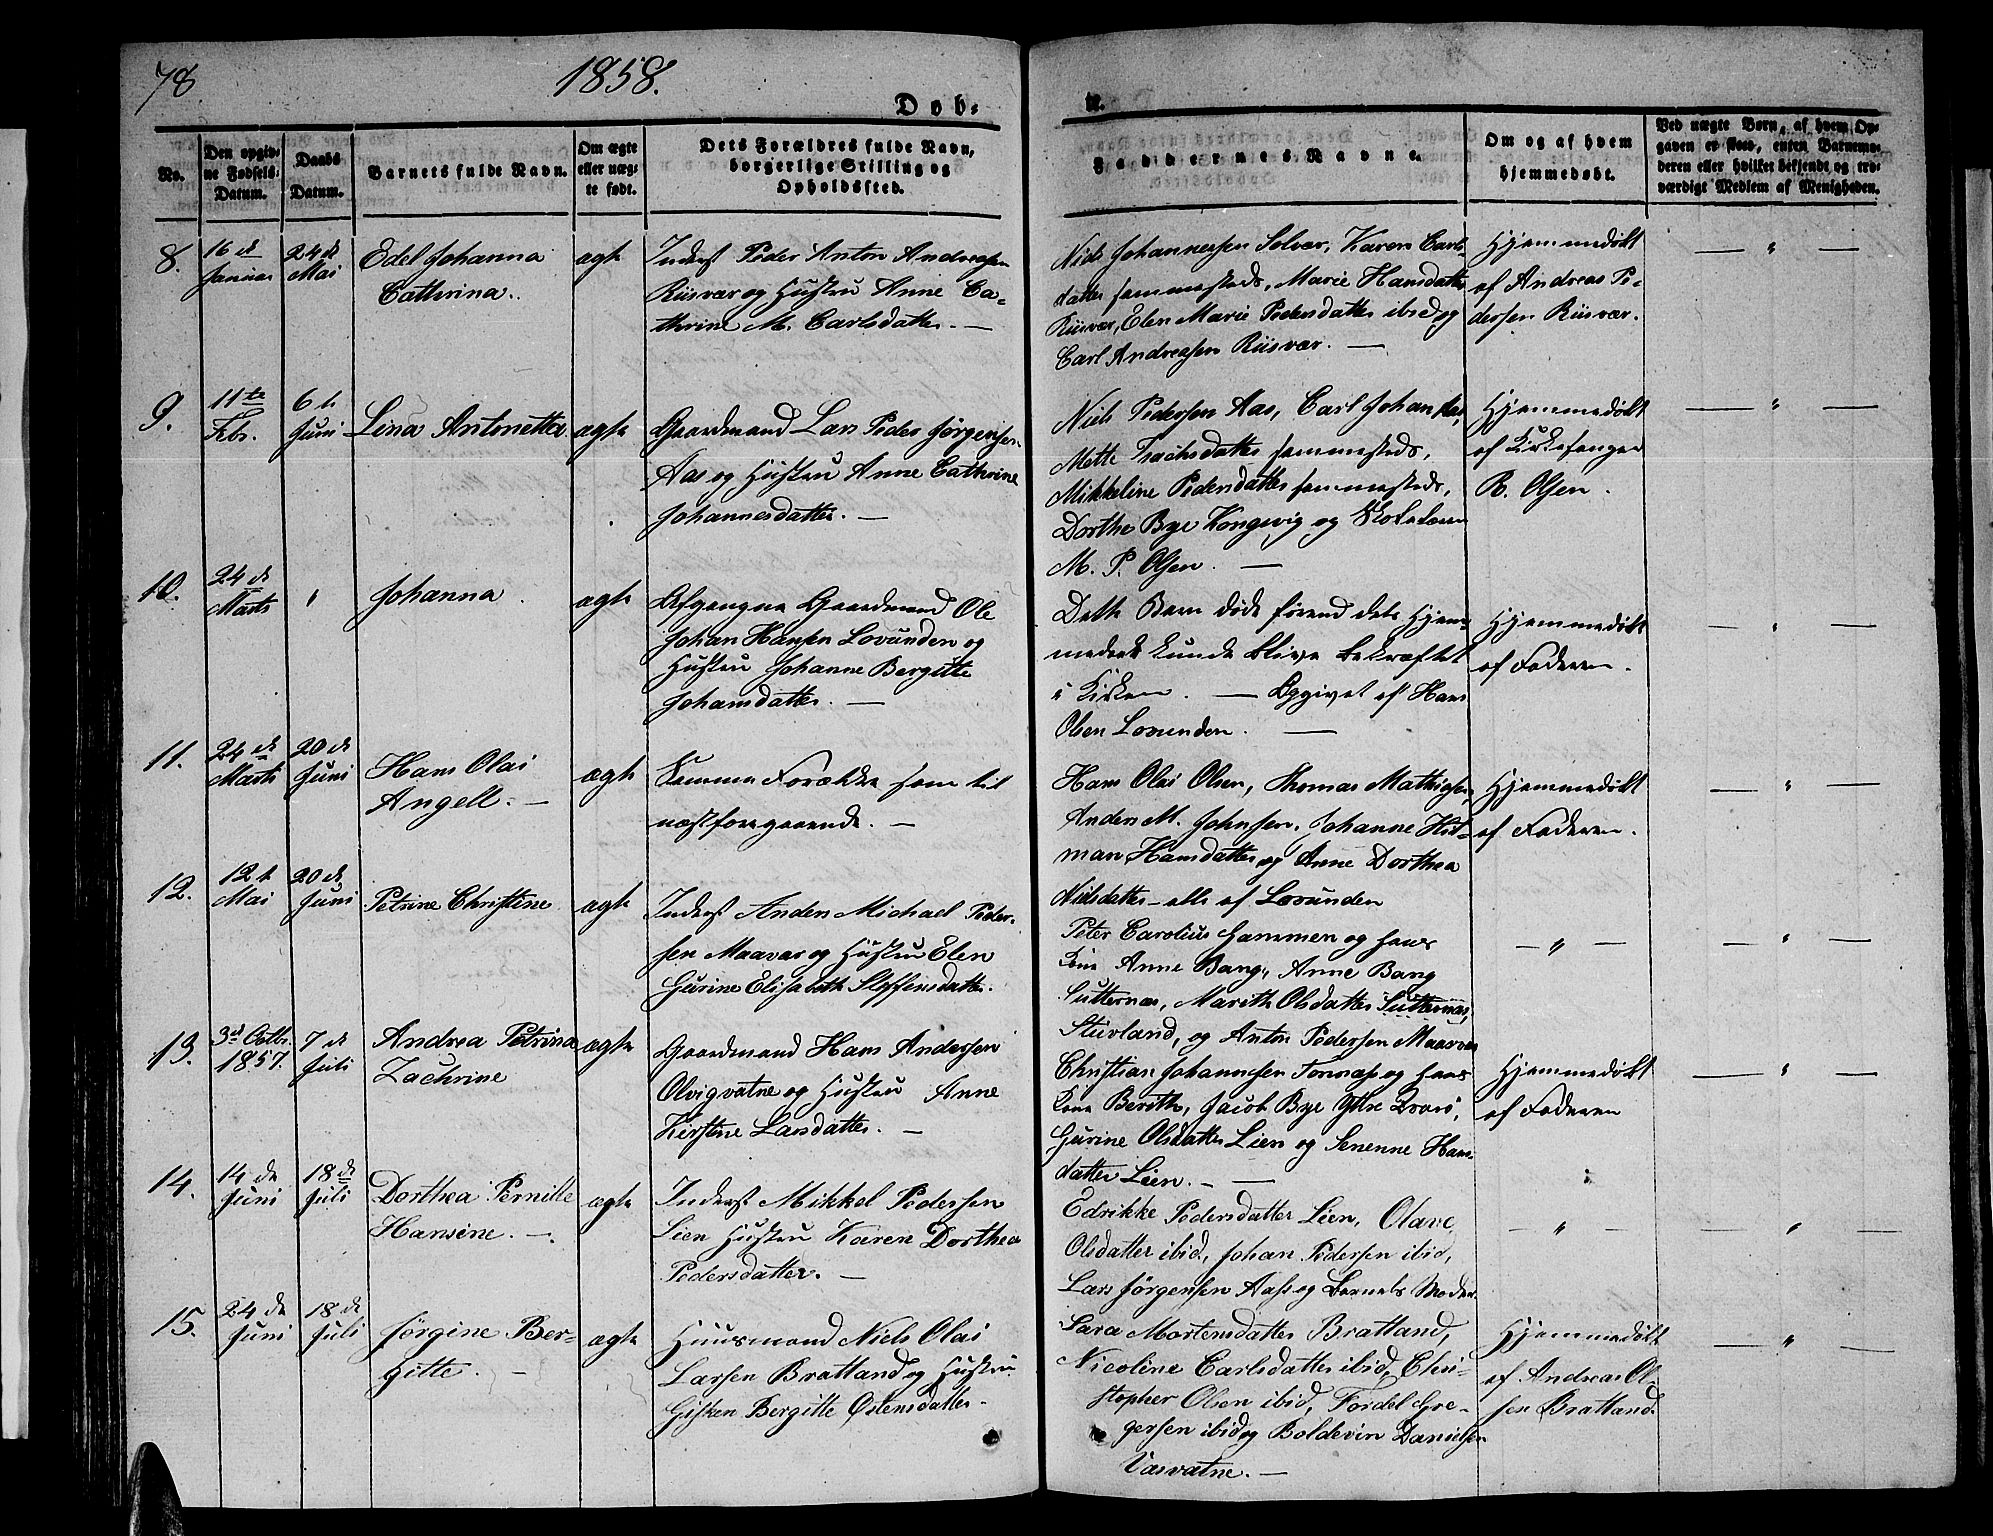 78
1858.
Døb-
te.
No.
Den opgiv-
ne Fødsels-
Datum.
Daabs
Datum.
Barnets fulde Navn.
Om ægte
eller uæg-
te født.
Dets Forældres fulde Navn,
borgerlige Stilling og
Opholdssted.
Faddernes Navne.
Om og af hvem
hjemmedøbt.
Ved uægte Børn, af hvem Op-
gaven er skeed, enten Barnemo-
deren eller hvilket bekjendt og tro-
værdigt Medlem af Menigheden.
8.
16de
Januar
24de
Mai
Edel Johanna
Cathrina.
ægte
Inderst Peder Anton Andreasen
Riisvær og Hustru Anne Ca-
thrine M. Carlsdatter. —
Niels Johannessen Solvær, Karen Carls-
datter sammesteds, Marie Hansdatter
Riisvær, Elen Marie Pedersdatter ibid og
Carl Andreasen Riisvær. —
Hjemmedøbt
af Andreas Pe-
dersen Riisvær.
— " —
9.
11te
Febr.
6te
Juni
Lina Antonetta
ægte
Gaardmand Lars Peder Jørgensen
Aas og Hustru Anne Cathrine
Johannesdatter. —
Niels Pedersen Aas, Carl Johan Aas,
Mette Isachsdatter sammesteds,
Mikkeline Pedersdatter sammesteds,
Dorthe Bye Kongsvig og Skolelærer
M. P. Olsen. —
Hjemmedøbt
af Kirkesanger
R. Olsen.
— " —
10.
24de
Marts
"
Johanna
ægte
Afgangne Gaardmand Ole
Johan Hansen Lovunden og
Hustru Johanne Bergitte
Johansdatter. —
Dette Barn døde førend dets Hjem-
medaab kunde blive bekræftet
i Kirken. — Opgivet af Hans
Olsen Lovunden. —
Hjemmedøbt
af Faderen.
— " —
11.
24de
Marts
20de
Juni
Hans Olai
Angell. —
ægte
Samme Forældre som til
næstforegaaende. —
Hans Olai Olsen, Thomas Mathiasen,
Anders M. Johnsen, Johanne Hit-
man Hansdatter og Anne Dorthea
Nielsdatter — alle af Lovunden
Hjemmedøbt
af Faderen.
— " —
12.
12te
Mai
20de
Juni
Petrine Christine
ægte
Inderst Anders Michael Peder-
sen Maavær og Hustru Elen
Gurine Elisabeth Steffensdatter.
Peter Carolius Hammen og hans
Kone Anne Bang, Anne Bang
Sutternæs, Marith Olsdatter Sutternæs,
Stuvland, og Anton Pedersen Maavær
— " —
— " —
13.
3de Octbr.
1857.
7de
Juli
Andrea Petrina
Zachrine
ægte
Gaardmand Hans Andersen
Olvigvatne og Hustru Anne
Kirstine Larsdatter. —
Christian Johannesen Tonnæs og hans
Kone Berith, Jacob Bye Yttre Qvarø,
Gurine Olsdatter Lien og Senenne Hans-
datter Lien. —
Hjemmedøbt
af Faderen
— " —
14.
14de
Juni
18de
Juli
Dorthea Pernille
Hansine. —
ægte
Inderst Mikkel Pedersen
Lien Hustru Karen Dorthea
Pedersdatter. —
Edrikke Pedersdatter Lien, Olave
Olsdatter ibid, Johan Pedersen ibid,
Lars Jørgensen Aas og Barnets Moder.
— " —
— " —
15.
24de
Juni
18de
Juli
Jørgine Ber-
gitte. —
ægte
Huusmand Niels Olai
Larsen Bratland og Hustru
Gisken Bergitte Østensdatter.
Sara Mortensdatter Bratland,
Nicoline Carlsdatter ibid, Chri-
stopher Olsen ibid, Fordel Gre-
gersen ibid og Boldevin Danielsen
Væsvatne. —
Hjemmedøbt
af Andreas Ol-
sen Bratland.
— " —